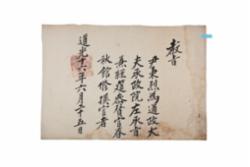 敎旨
尹秉烈爲通政大
夫承政院左承旨
兼經筵參贊官春
秋館修撰官者
道光十六年六月二十五日